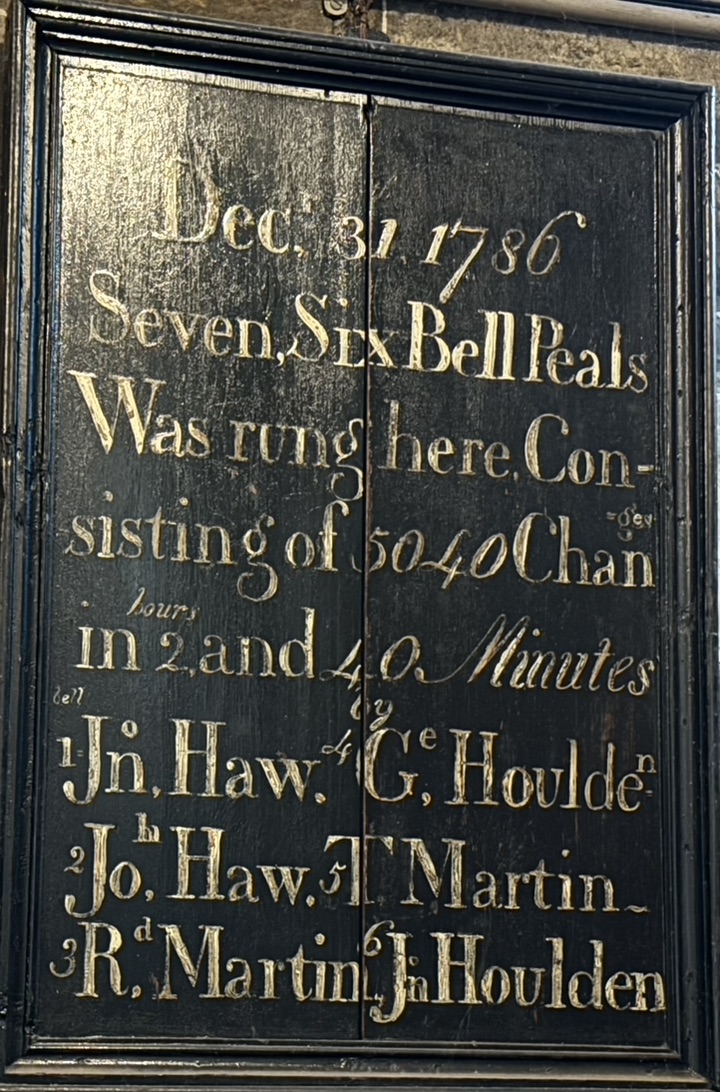 Dec.r 31, 1786
Seven, Six Bell Peals
Was rung here, Con-
sisting of 5040 Chan=ges
in 2 hours, and 40 Minutes
bell by
1 Jno, Haw. 4 Ge, Houlden
2 Joh, Haw. 5 T Martin
3 Rd, Martin 6 Jn Houlden